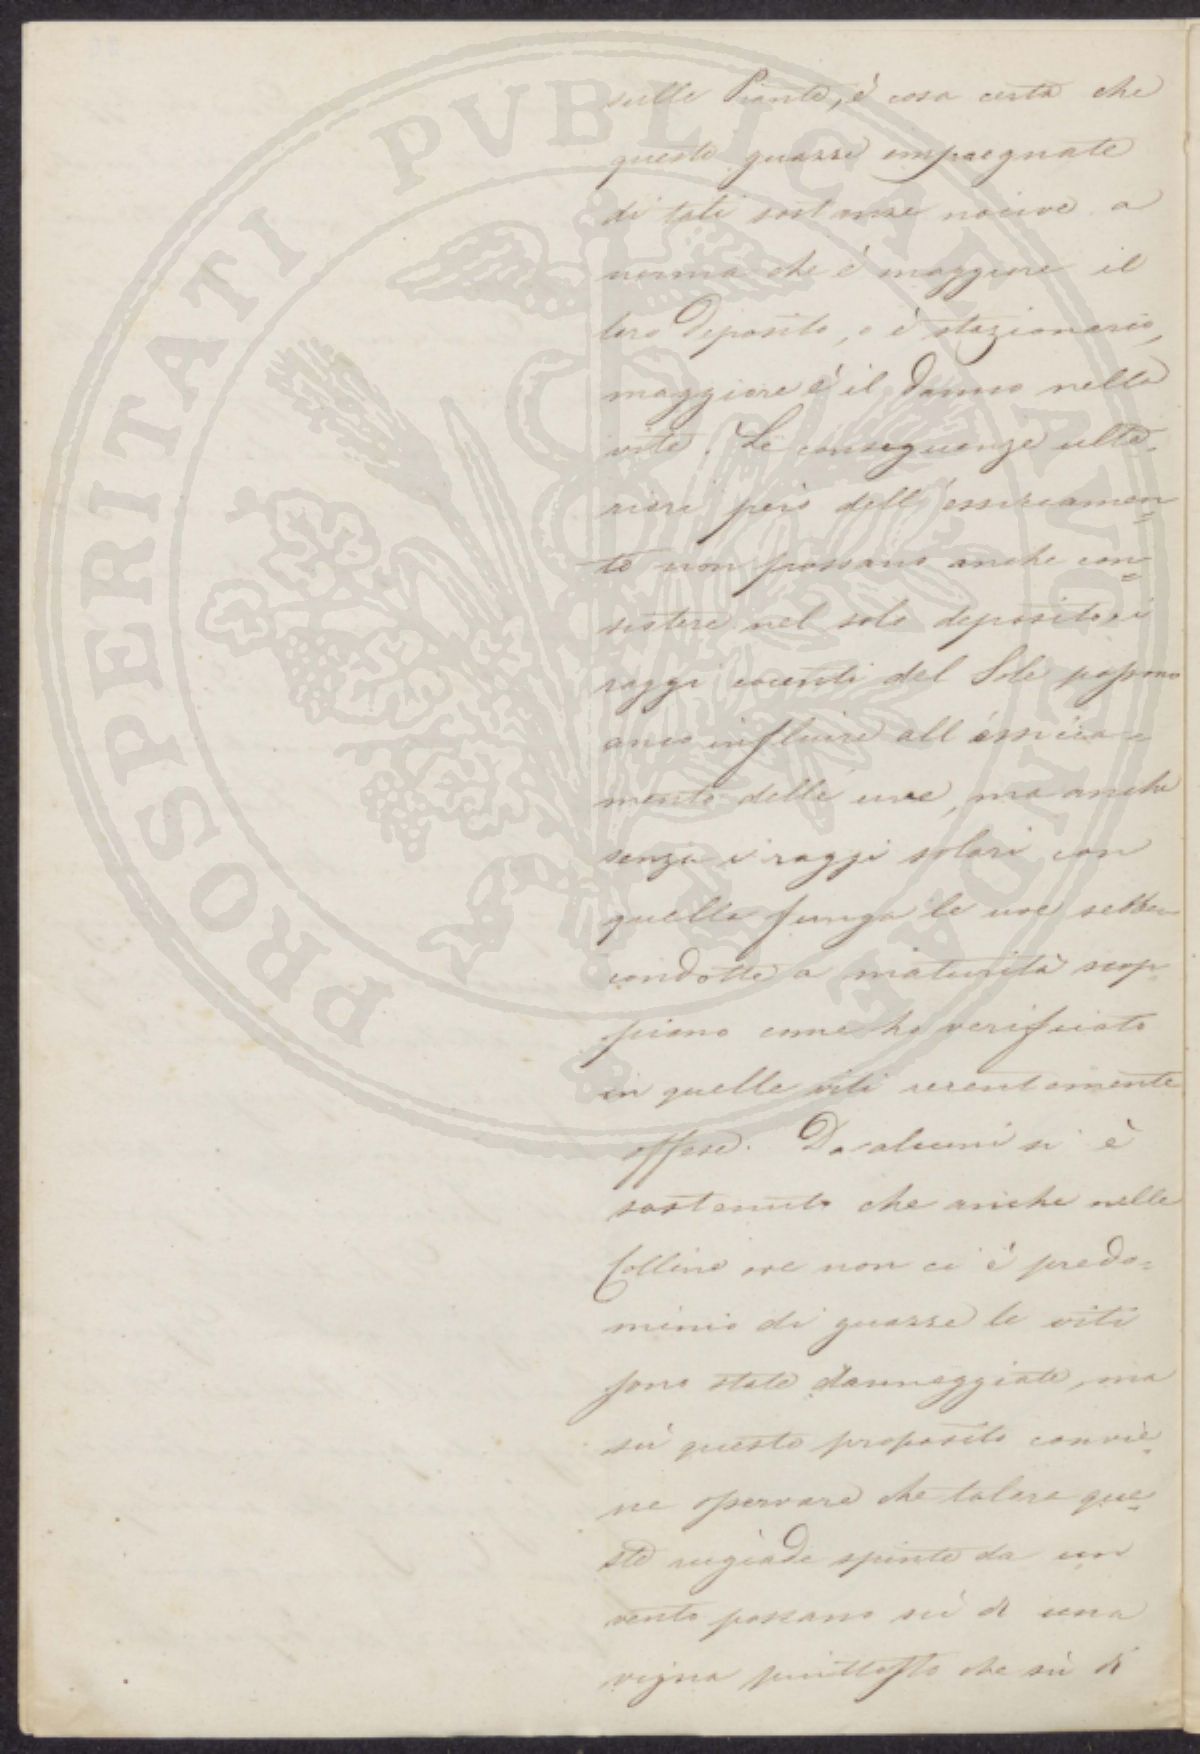 PROSPERITATI PUBLICAE AUGENDAE
sulle Piante, è cosa certa che
queste guazze impregnate
di tali sostanze nocive a
norma che è maggiore il
loro deposito, o è stazionario,
maggiore è il danno nella
vite. Le conseguenze ulte-
riori però dell'essiccamen=
to non possano anche con=
sistere nel solo deposito, i
raggi cocenti del Sole possono
anco influire all'essicca=
mento delle uve, ma anche
senza i raggi solari con
quella funga le uve sebben
condotte a maturità scop-
piano come ho verificato
in quelle viti recentemente
offese. Da alcuni si è
sostenuto che anche nelle
Colline ove non ci è predo=
minio di guazze le viti
sono state danneggiate, ma
sù questo proposito convie=
ne osservare che talora que=
ste rugiade spinte da un
vento passano sù di una
vigna piuttosto che sù di